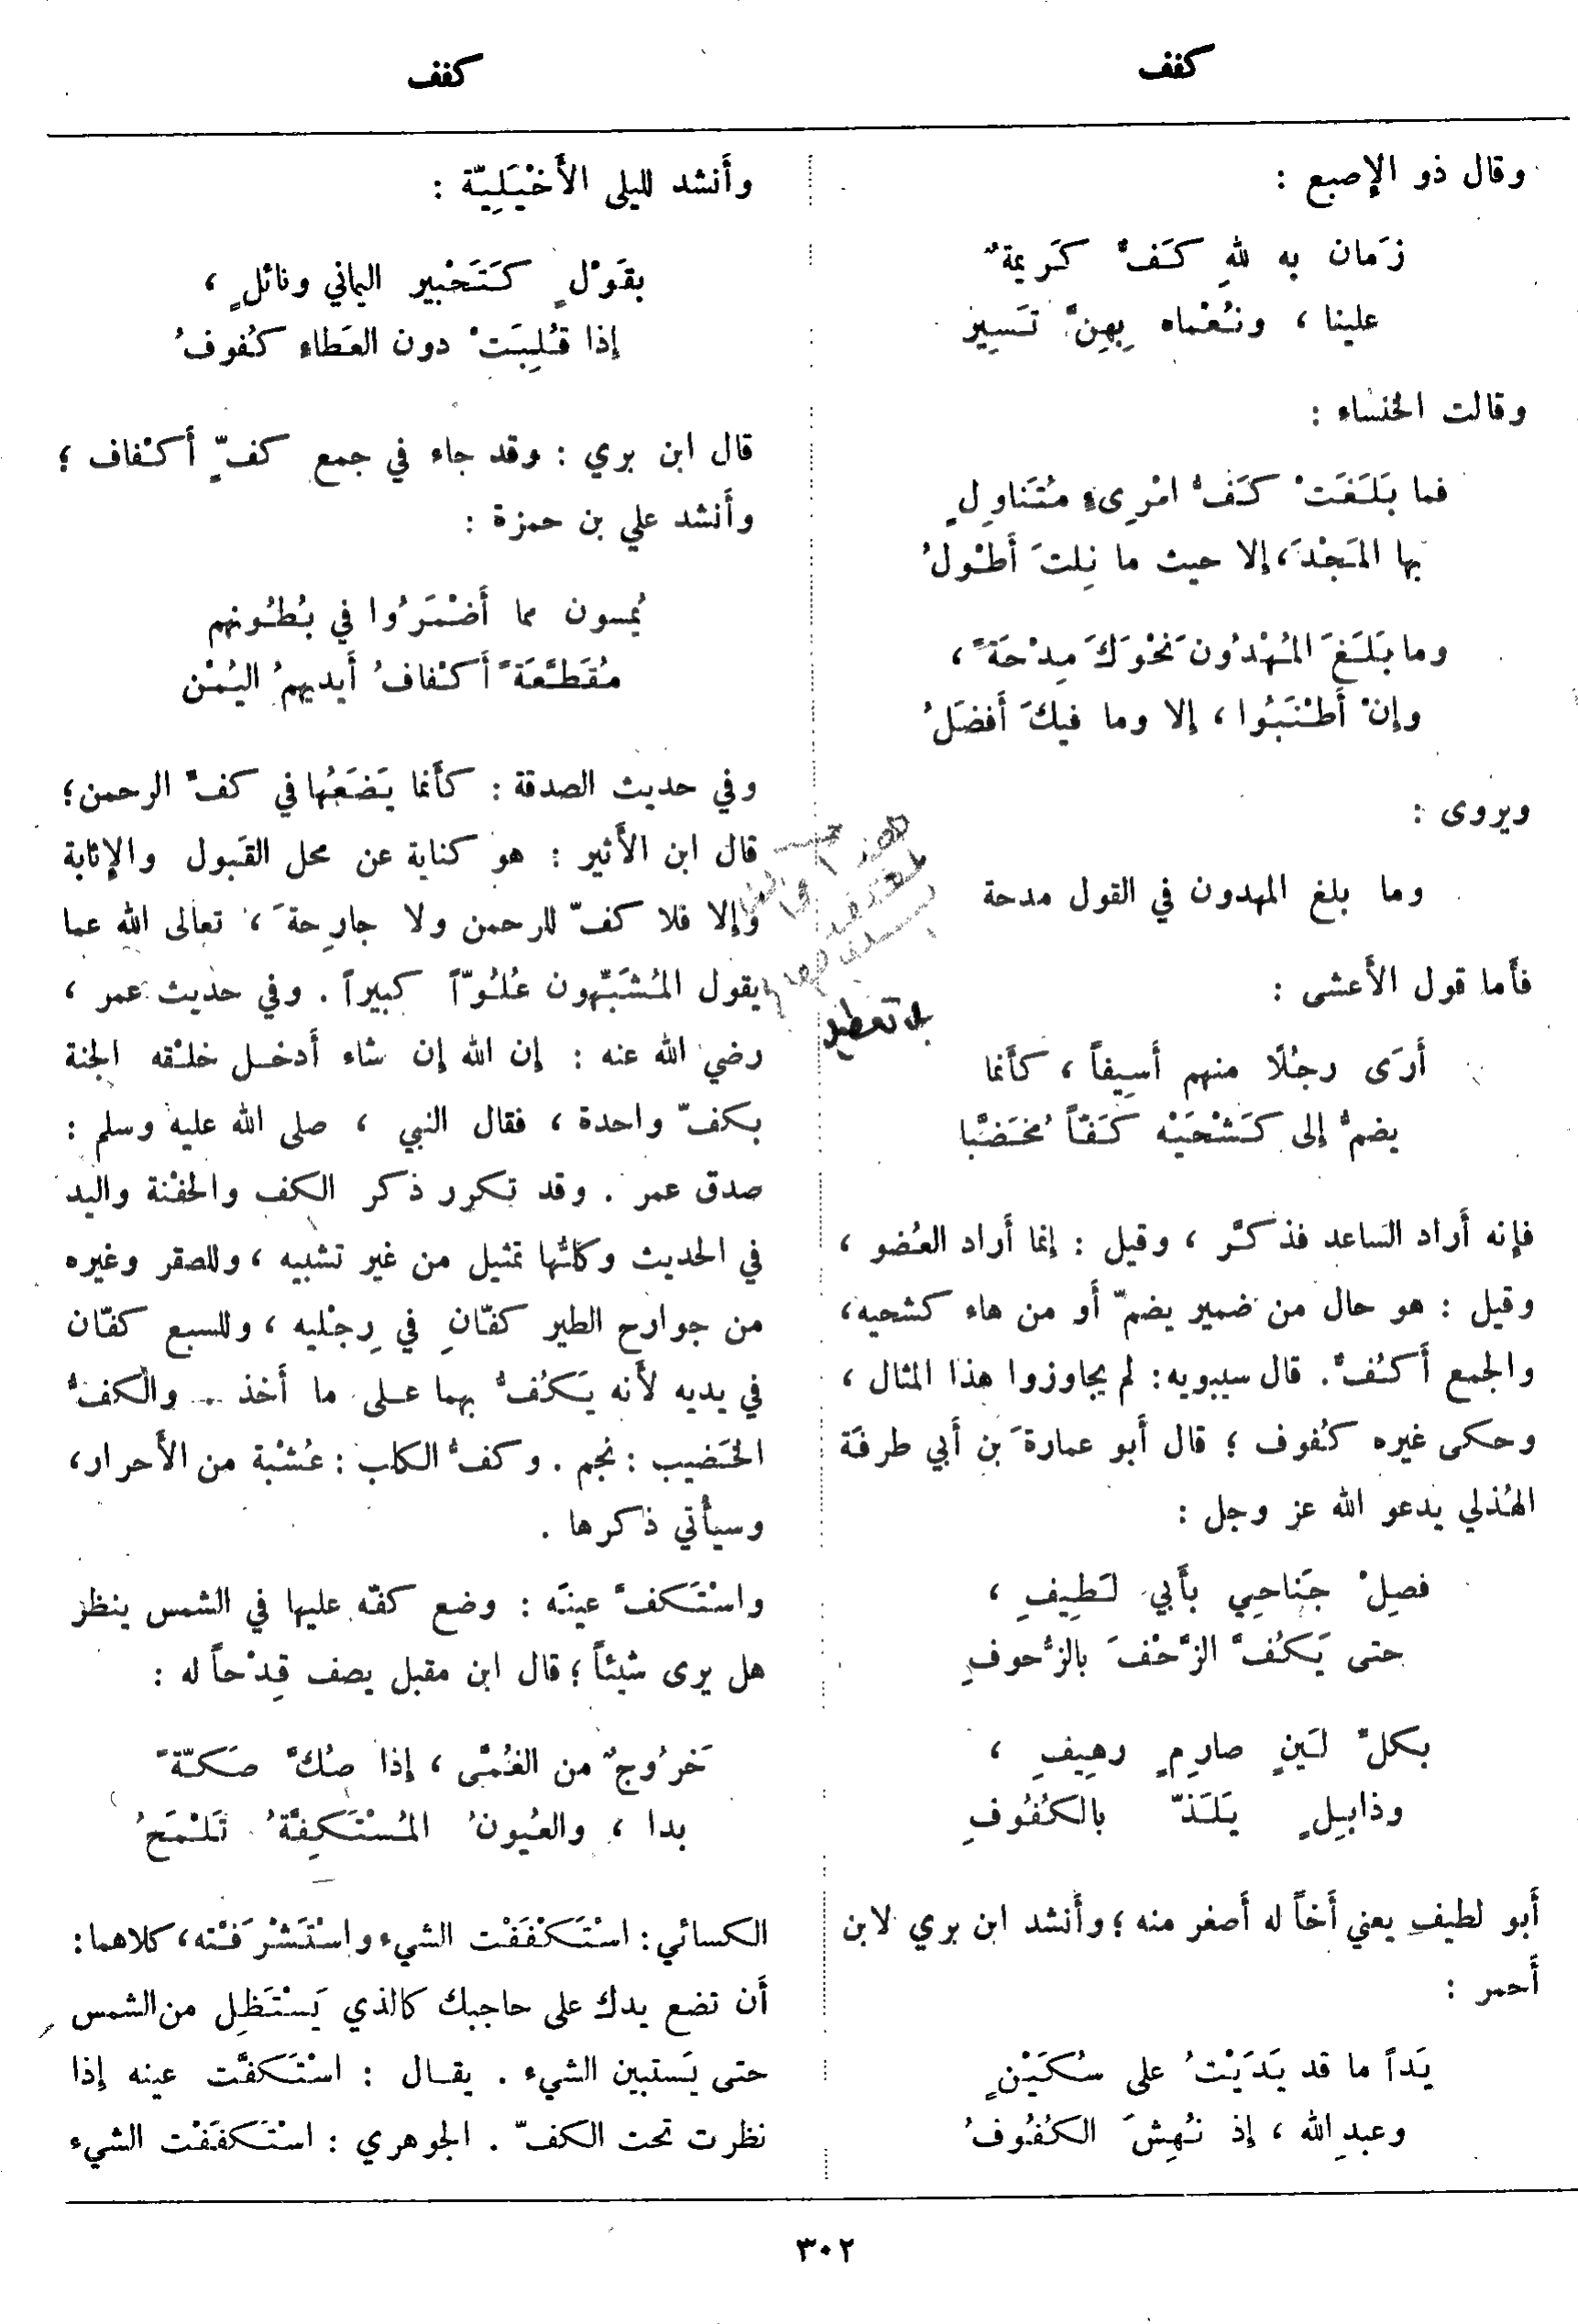 كفف
كفف
وقال ذو الإصبع :
زَمان به للهِ كَفٌّ كَريمةٌ
علينا ، ونُعْماه بِهِنَّ تَسِير
وقالت الخنساء :
فما بَلَغَتْ كَفُّ امْرِىءٍ مُتَناوِلٍ
بها المَجْدَ، إلا حيث ما نِلتَ أَطْولُ
وما بَلَغَ المُهْدُون نَحْوَكَ مِدْحَةً ،
وإنْ أَطْنَبُوا ، إلا وما فيكَ أَفضَلُ
ويروى :
وما بلغ المهدون في القول مدحة
فأَما قول الأَعشى :
أَرَى رجُلًا منهم أَسِيفاً ، كأَنما
يضمُّ إلى كَشْحَيْه كَفّاً مُخَضَّبا
فإنه أَراد الساعد فذكَّر ، وقيل : إنما أَراد العُضو ،
وقيل : هو حال من ضمير يضمّ أَو من هاء كشحيه،
والجمع أَكُفٌّ. قال سيبويه: لم يجاوزوا هذا المثال ،
وحكى غيره كُفوف ؛ قال أَبو عمارةَ بن أَبي طرفَة
الهُذلي يدعو الله عز وجل :
فصِلْ جَناحِي بأَبي لَطِيفِ ،
حتى يَكُفَّ الزَّحْفَ بالزُّحوفِ
بكلِّ لَينٍ صارِمٍ رهِيفِ ،
وذابِلٍ يَلَذّ بالكُفُوفِ
أَبو لطيفِ يعني أَخاً له أَصغر منه ؛ وأَنشد ابن بري لابن
أَحمر :
يَداً ما قد يَدَيْتُ على سُكَيْنٍ
وعبدِ الله ، إذ نُهِشَ الكُفُوفُ
وأَنشد لليلى الأَخْيَلِيّة :
بقَوْلٍ كَتَحْبير اليماني ونائلٍ ،
إذا قُلِبَتْ دون العَطاء كُفوفُ
قال ابن بري : وقد جاء في جمع كفٍّ أَكْفاف ؛
وأَنشد علي بن حمزة :
يُمسون مما أَضْمَرُوا في بُطُونهم
مُقَطَّعَةً أَكْفافُ أَيديهمُ اليُمْن
وفي حديث الصدقة : كأَنما يَضَعُها في كفِّ الرحمن؛
قال ابن الأَثير : هو كناية عن محل القَبول والإثابة
وإلا فلا كفّ للرحمن ولا جارِحةَ ، تعالى الله عما
يقول المُشَبِّهون عُلُوّاً كبيراً . وفي حديث عمر ،
رضي الله عنه : إن الله إن شاء أَدخل خلْقه الجنة
بكفّ واحدة ، فقال النبي ، صلى الله عليه وسلم :
صدق عمر . وقد تكرر ذكر الكف والحفْنة واليد
في الحديث وكلُّها تمثيل من غير تشبيه ، وللصقر وغيره
من جوارح الطير كفّانِ في رِجْليه ، وللسبع كفّان
في يديه لأَنه يَكُفُّ بهما على ما أَخذ . والكفُّ
الخَضيب : نجم . وكفُّ الكلب : عُشْبة من الأَحرار،
وسيأْتي ذكرها .
واسْتَكفَّ عينَه : وضع كفّه عليها في الشمس ينظر
هل يرى شيئاً ؛ قال ابن مقبل يصف قِدْحاً له :
خَرُوجٌ من الغُمَّى ، إذا صُكَّ صَكّةً
بدا ، والعُيونُ المُسْتَكِفَّةُ تَلْمَحُ
الكسائي: اسْتَكْفَفْت الشيء واسْتَشْرَفْته، كلاهما:
أَن تضع يدك على حاجبك كالذي يَسْتَظِل من الشمس
حتى يَستبين الشيء . يقال : اسْتَكفَّت عينه إذا
نظرت تحت الكفّ . الجوهري : اسْتَكفَفْت الشيء
بلا تعطيل
٣٠٢